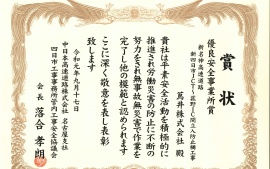 賞状
優良安全事業所賞
新名神高速道路
新四日市JCT~菰野IC間立入防止柵工事
萬井株式会社 殿
貴社は平素安全活動を積極的に
推進され労働災害の防止に不断の
努力をされ無事故無災害で作業を
完了し他の模範と認められます
ここに深く敬意を表し表彰
致します
令和元年九月十七日
中日本高速道路株式会社 名古屋支社
四日市工事事務所管内工事安全協議会
会長 落合孝朗